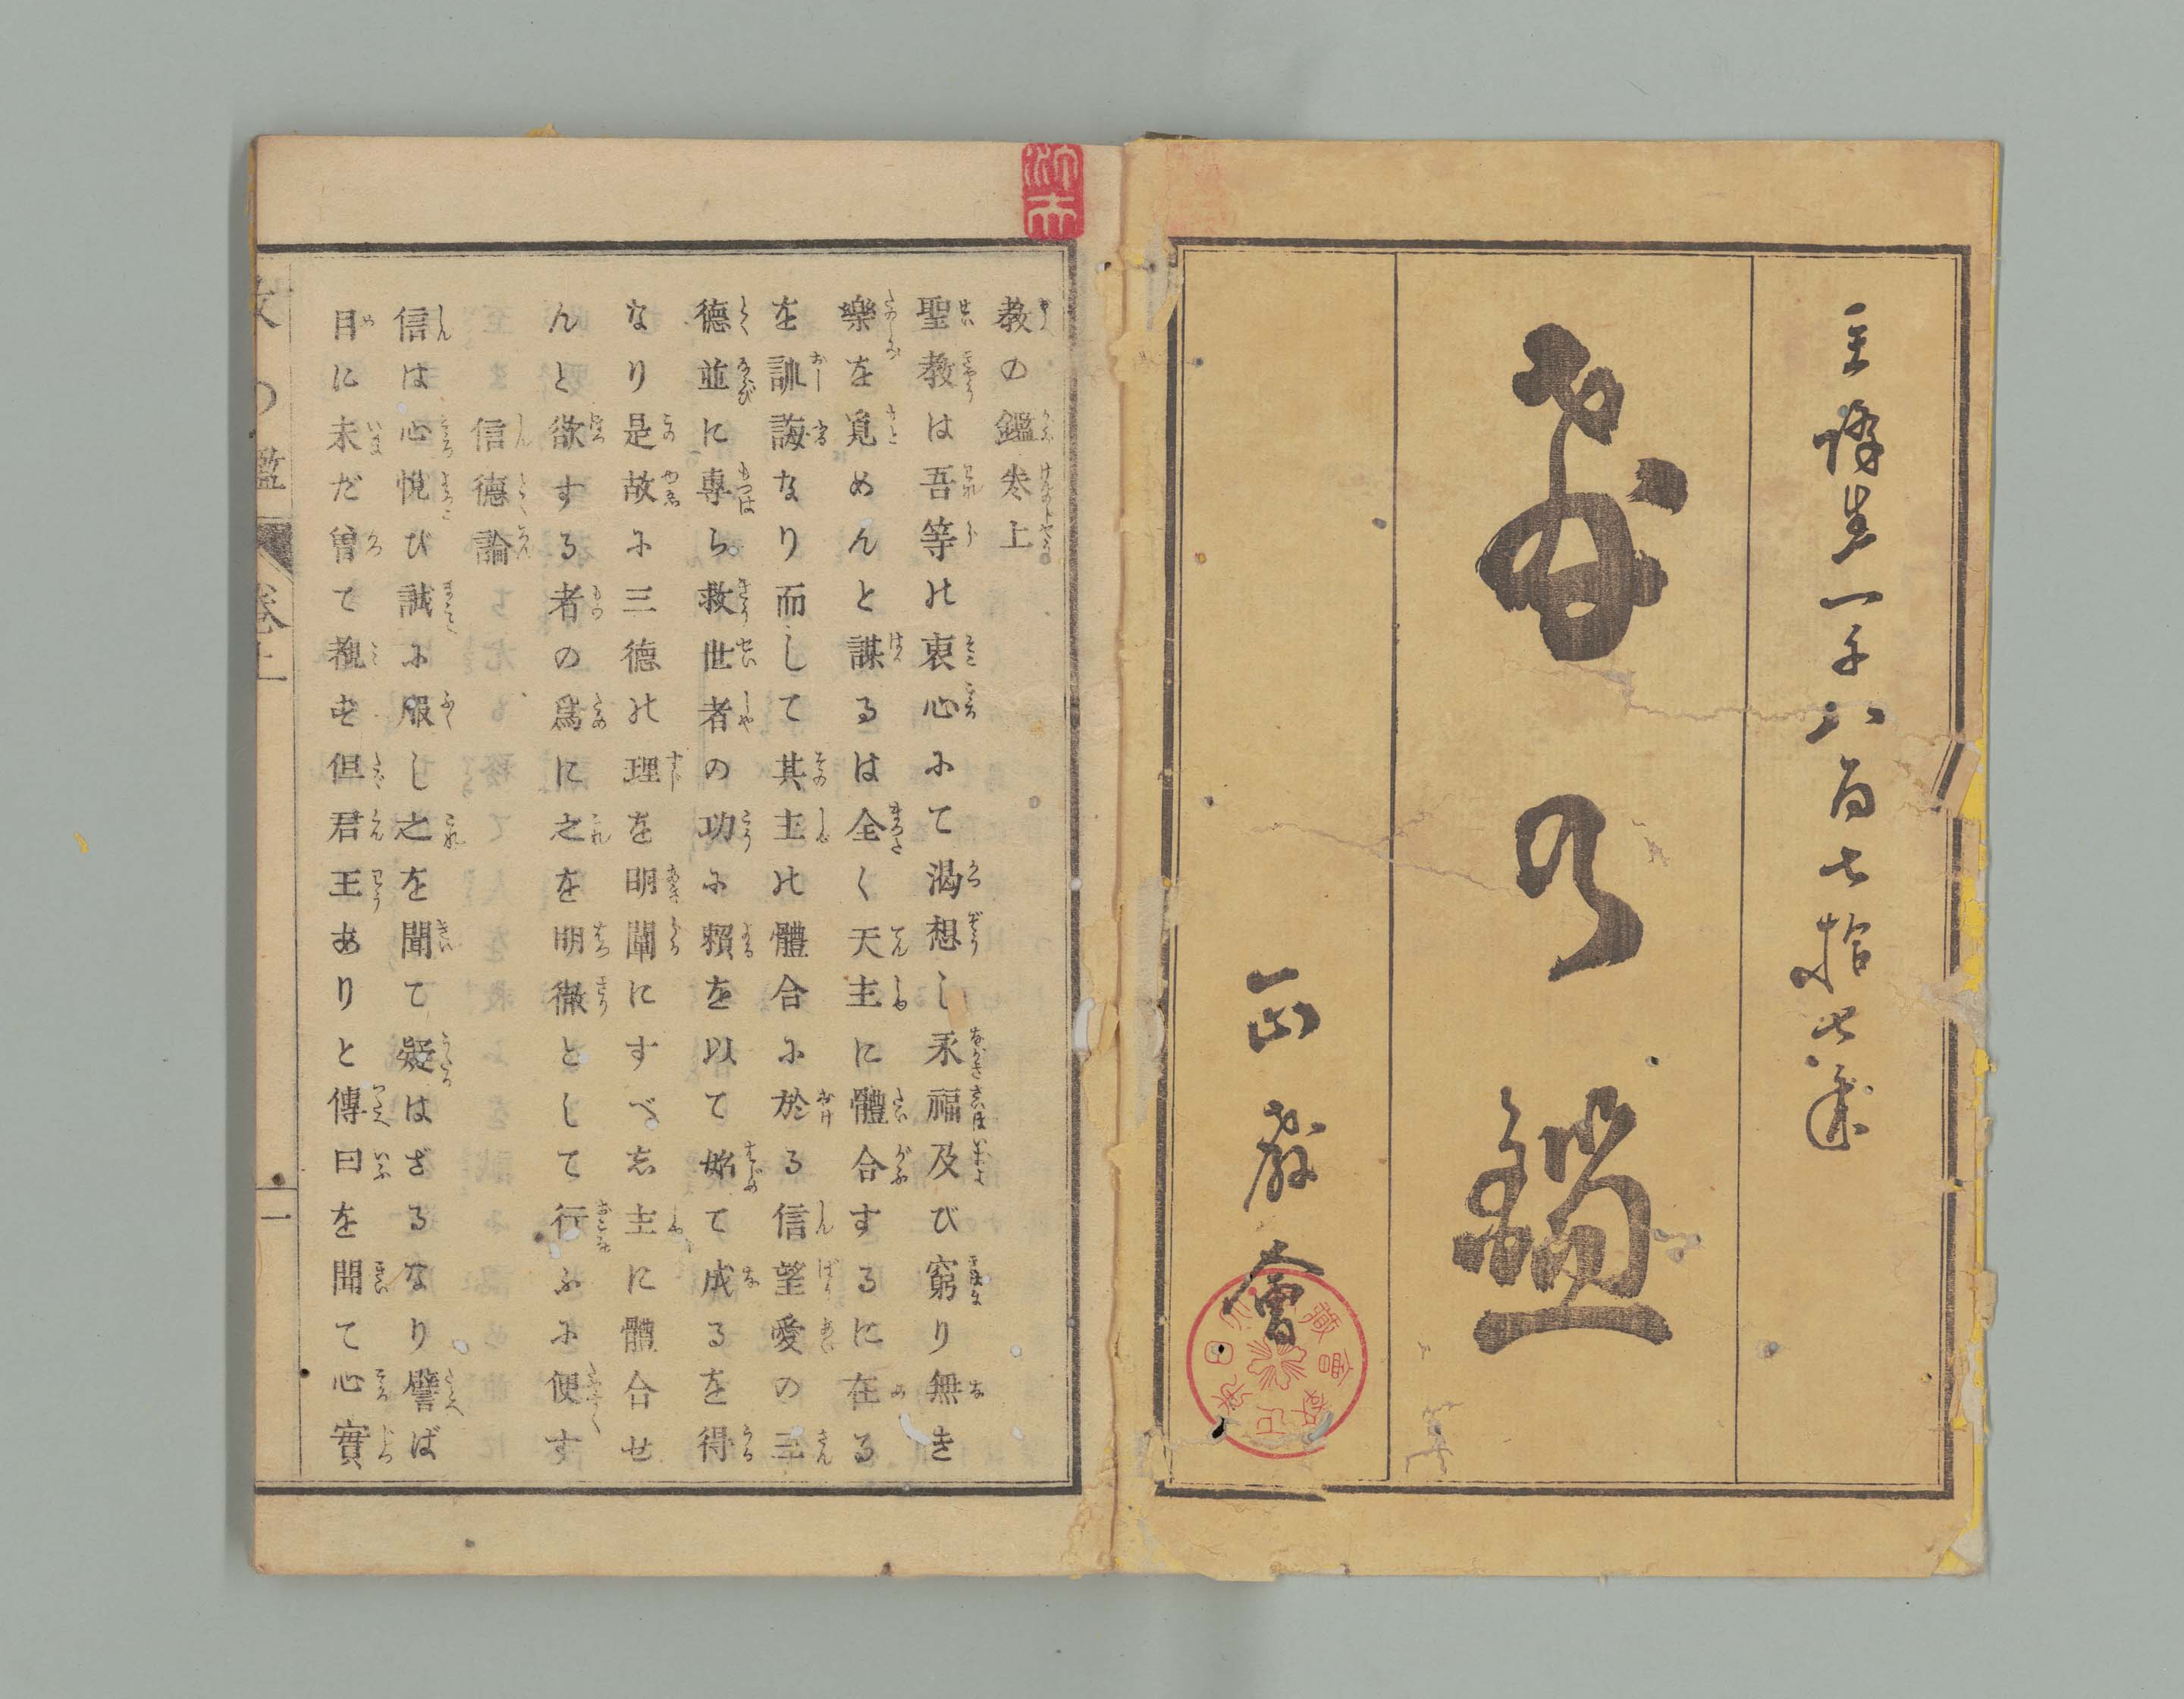 主降生一千八百七拾七歳
教の鑑
正教會
教の鑑巻上
聖教は吾等の衷心にて渇想し永福及び窮り無き
樂を覓めんと謀るは全く天主に體合するに在る
を訓誨なり而して其主の體合に於る信望愛の三
德並に專ら救世者の功に賴を以て始て成るを得
なり是故に三德の理を明闡にすべし主に體合せ
んと欲する者の爲に之を明徹として行ふに便す
信德論
信は心悅び誠に服し之を聞て疑はざるなり譬ば
目に未だ曾て覩ず但君王ありと傳曰を聞て心實